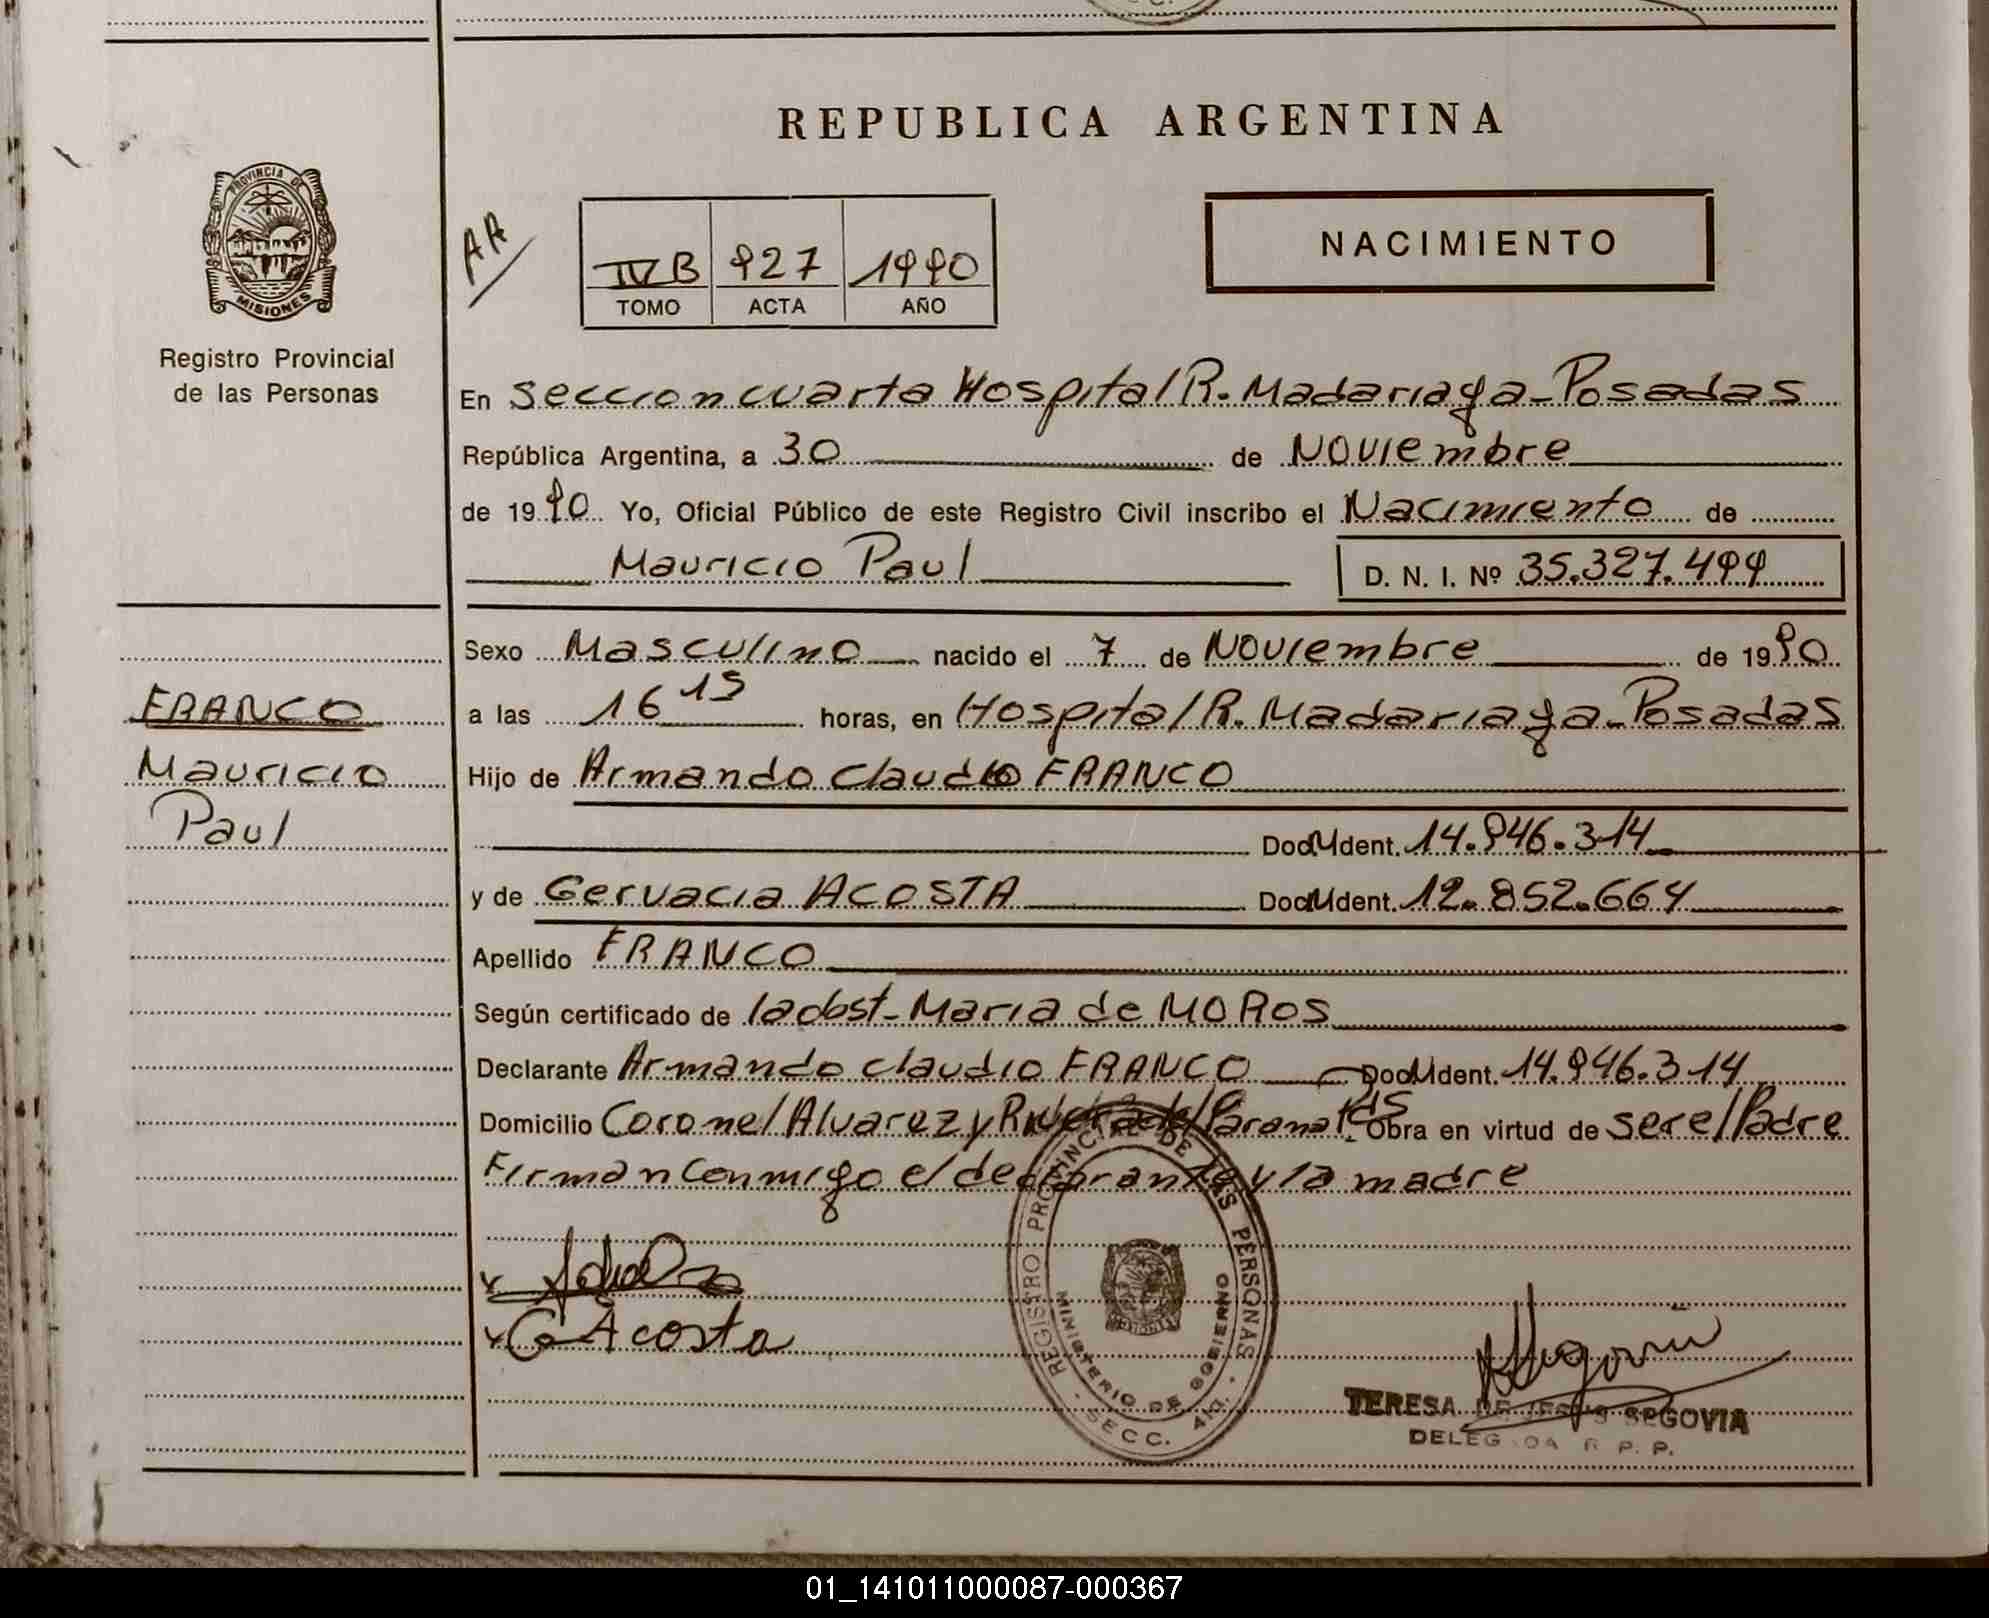 REPUBLICA ARGENTINA
PROVINCIA DE
MISIONES
Registro Provincial
de las Personas
AA
IV B 927 1990
TOMO ACTA AÑO
NACIMIENTO
En seccion cuarta Hospital R. Madariaga - Posadas
República Argentina, a 30 de Noviembre
de 1990 Yo, Oficial Público de este Registro Civil inscribo el Nacimiento de
Mauricio Paul D. N. I. Nº 35.327.499
Sexo Masculino nacido el 7 de Noviembre de 1990
a las 16 15 horas, en Hospital R. Madariaga - Posadas
Hijo de Armando Claudio FRANCO
Doc. Ident. 14.946.314
y de Gervacia ACOSTA Doc. Ident. 12.852.664
Apellido FRANCO
Según certificado de la obst. Maria de MOROS
Declarante Armando Claudio FRANCO Doc. Ident. 14.946.314
Domicilio Coronel Alvarez y Rivera del Parana Pdas Obra en virtud de ser el Padre
Firman conmigo el declarante y la madre
FRANCO
Mauricio
Paul
G Acosta
REGISTRO PROVINCIAL DE LAS PERSONAS
MINISTERIO DE GOBIERNO
SECC. 4ta.
TERESA DE JESUS SEGOVIA
DELEGADA R. P. P.
01_141011000087-000367